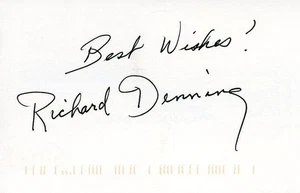 Best Wishes!
Richard Denning